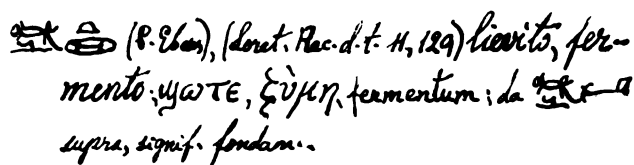 (P. Ebers), (Loret. Rec. d. t. 11, 129) lievito, fer-
mento; ϣⲱⲧⲉ, ζύμη, fermentum; da
supra, signif. fondam..